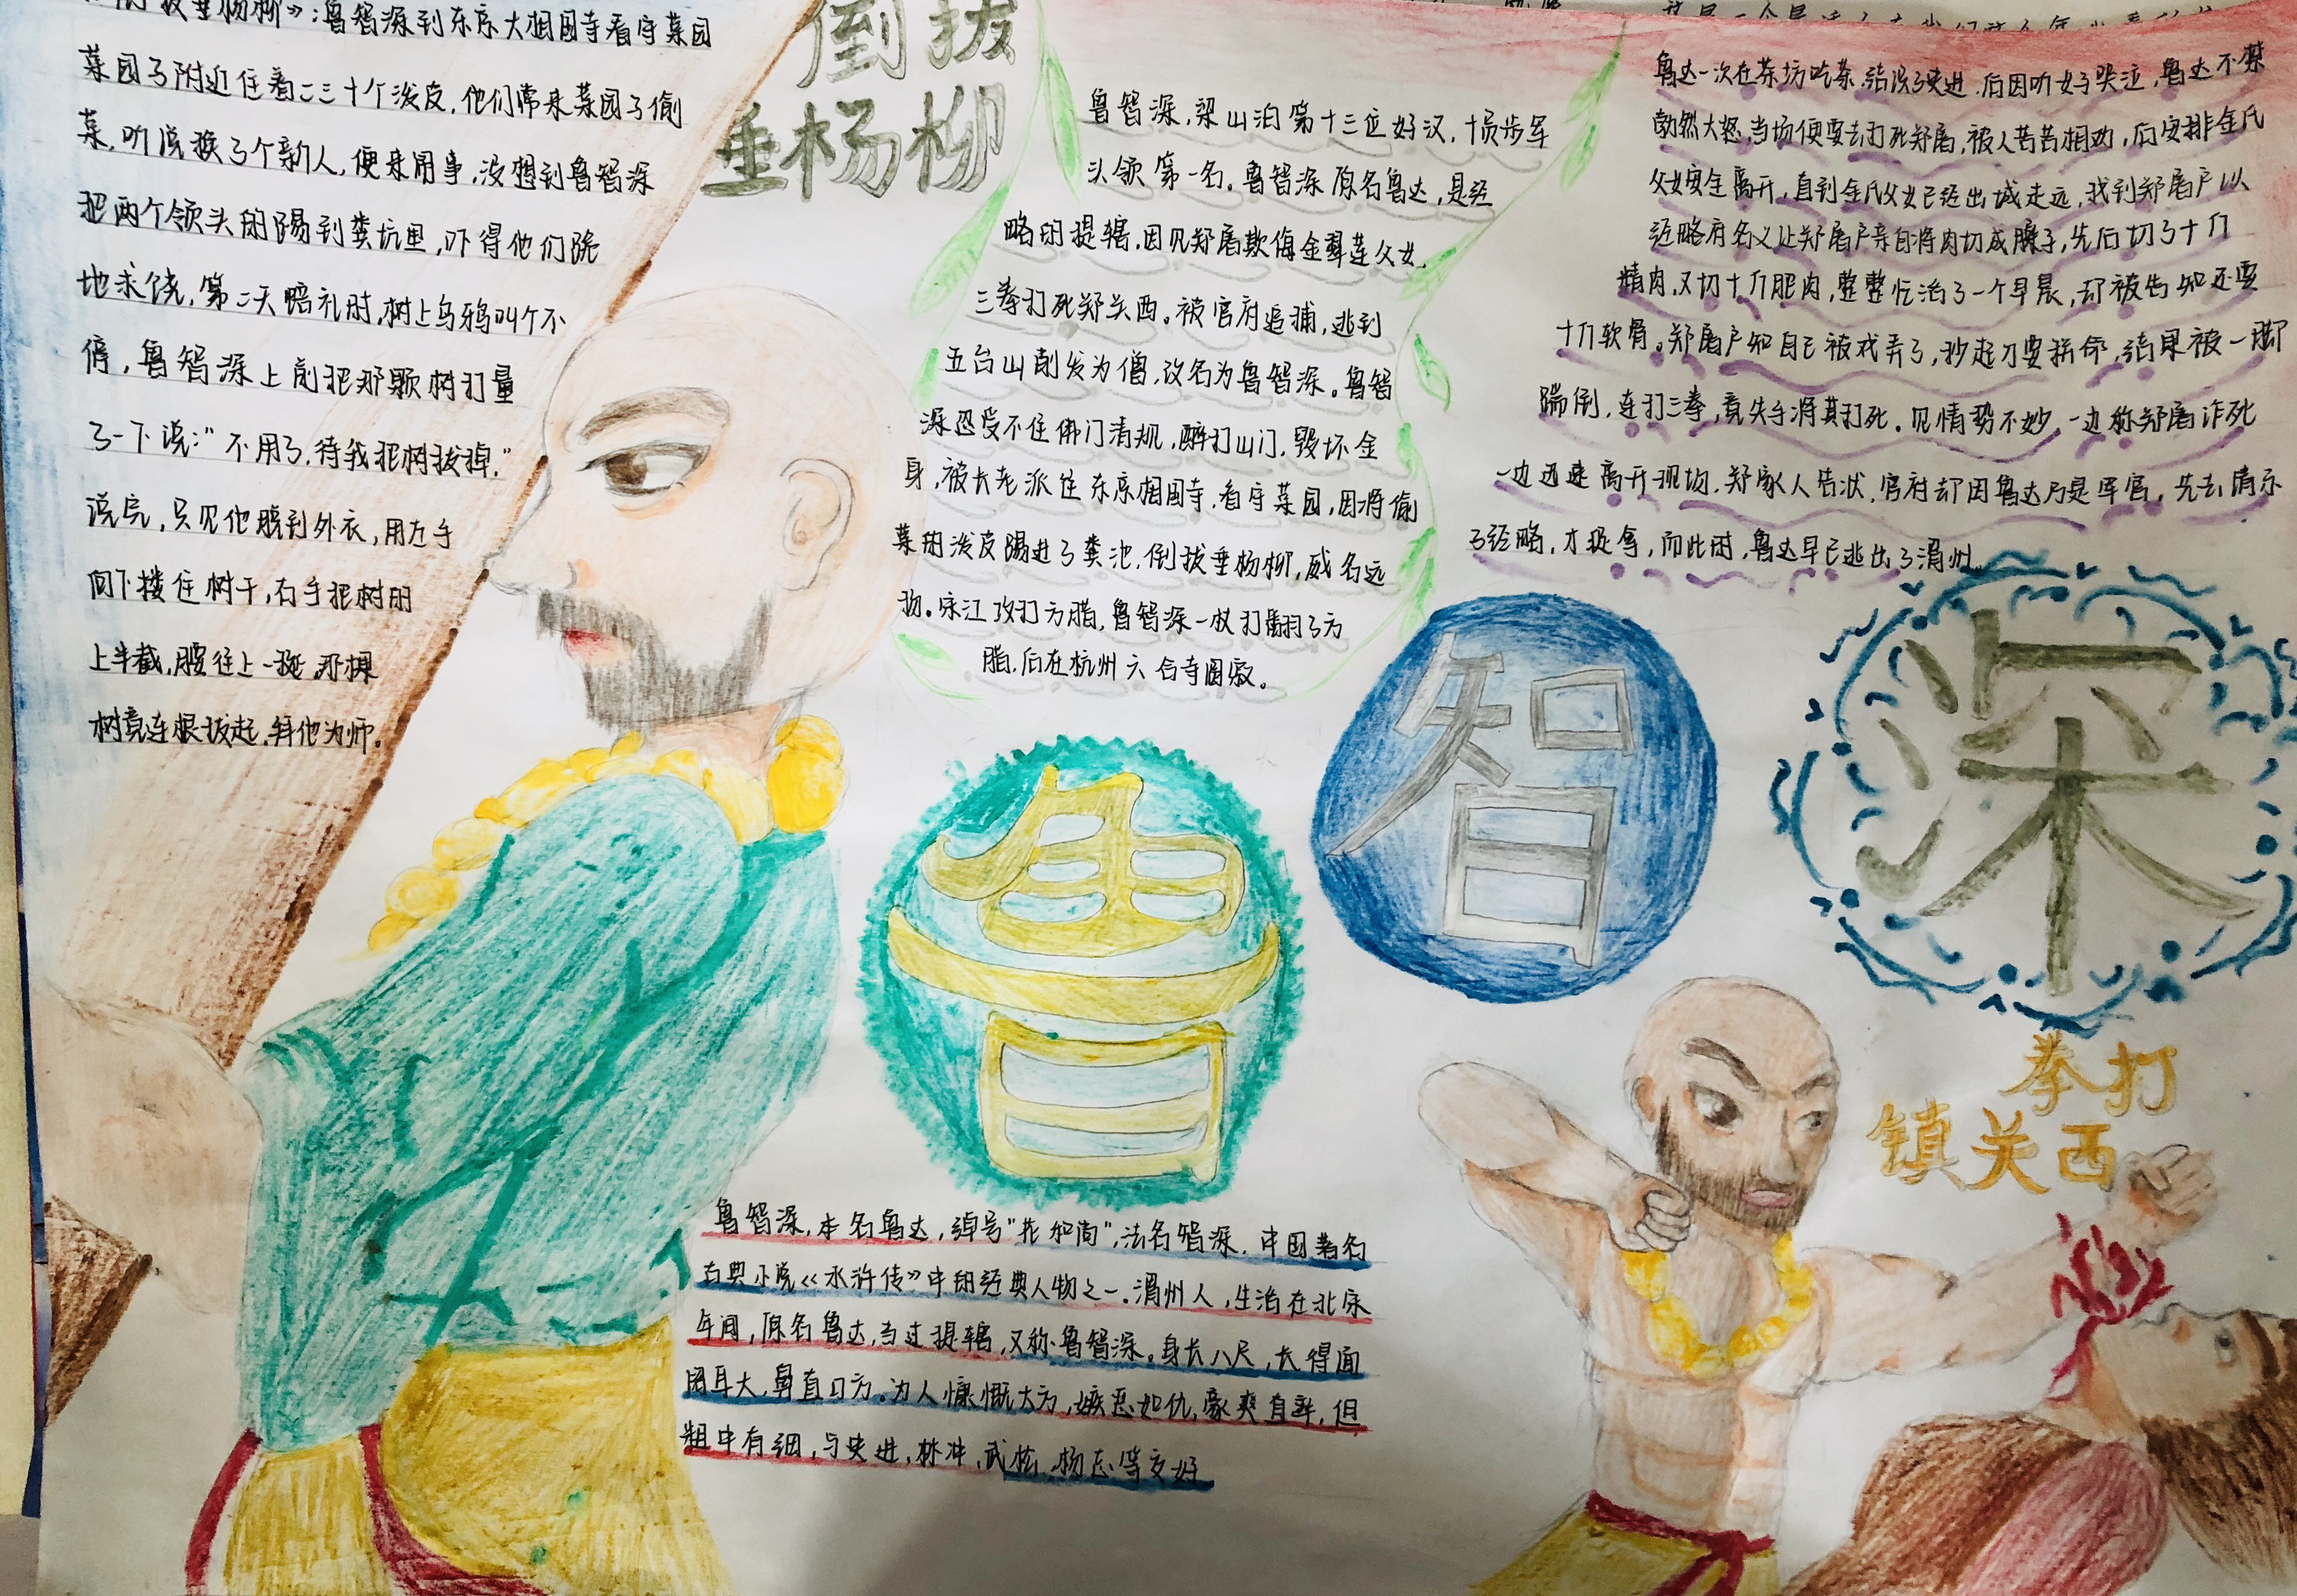 垂杨柳》：鲁智深到东京大相国寺看守菜园
菜园子附近住着二三十个泼皮，他们常来菜园子偷
菜，听说换了个新人，便来闹事，没想到鲁智深
把两个领头的踢到粪坑里，吓得他们跪
地求饶，第二天赔礼时，树上乌鸦叫个不
停，鲁智深上前把那颗树打量
了一下说：“不用了，待我把树拔掉。”
说完，只见他脱到外衣，用左手
向下搂住树干，右手把树的
上半截，腰往上一挺，那棵
树竟连根拔起，拜他为师。
倒拔
垂杨柳
鲁智深，梁山泊第十三位好汉，十员步军
头领第一名。鲁智深原名鲁达，是经
略的提辖，因见郑屠欺侮金翠莲父女，
三拳打死郑关西。被官府追捕，逃到
五台山削发为僧，改名为鲁智深。鲁智
深忍受不住佛门清规，醉打山门，毁坏金
身，被长老派往东京相国寺，看守菜园，因将偷
菜的泼皮踢进了粪池，倒拔垂杨柳，威名远
扬。宋江攻打方腊，鲁智深一杖打翻了方
腊，后在杭州六合寺圆寂。
鲁达一次在茶坊吃茶，结识了史进，后因听女子哭泣，鲁达不禁
勃然大怒，当场便要去打死郑屠，被人苦苦相劝，后安排金氏
父女安全离开，直到金氏父女已经出城走远，找到郑屠户以
经略府名义让郑屠户亲自将肉切成臊子，先后切了十斤
精肉，又切十斤肥肉，整整忙活了一个早晨，却被告知还要
十斤软骨。郑屠户知自己被戏弄了，抄起刀要拼命，结果被一脚
踹倒，连打三拳，竟失手将其打死。见情势不妙，一边称郑屠诈死
一边迅速离开现场，郑家人告状，官府却因鲁达乃是军官，先去请示
了经略，才捉拿，而此时，鲁达早已逃出了渭州。
鲁
智
深
拳打
镇关西
鲁智深，本名鲁达，绰号“花和尚”，法名智深，中国著名
古典小说《水浒传》中的经典人物之一。渭州人，生活在北宋
年间，原名鲁达，当过提辖，又称鲁智深。身长八尺，长得面
阔耳大，鼻直口方。为人慷慨大方，嫉恶如仇，豪爽直率，但
粗中有细，与史进，林冲，武松，杨志等交好